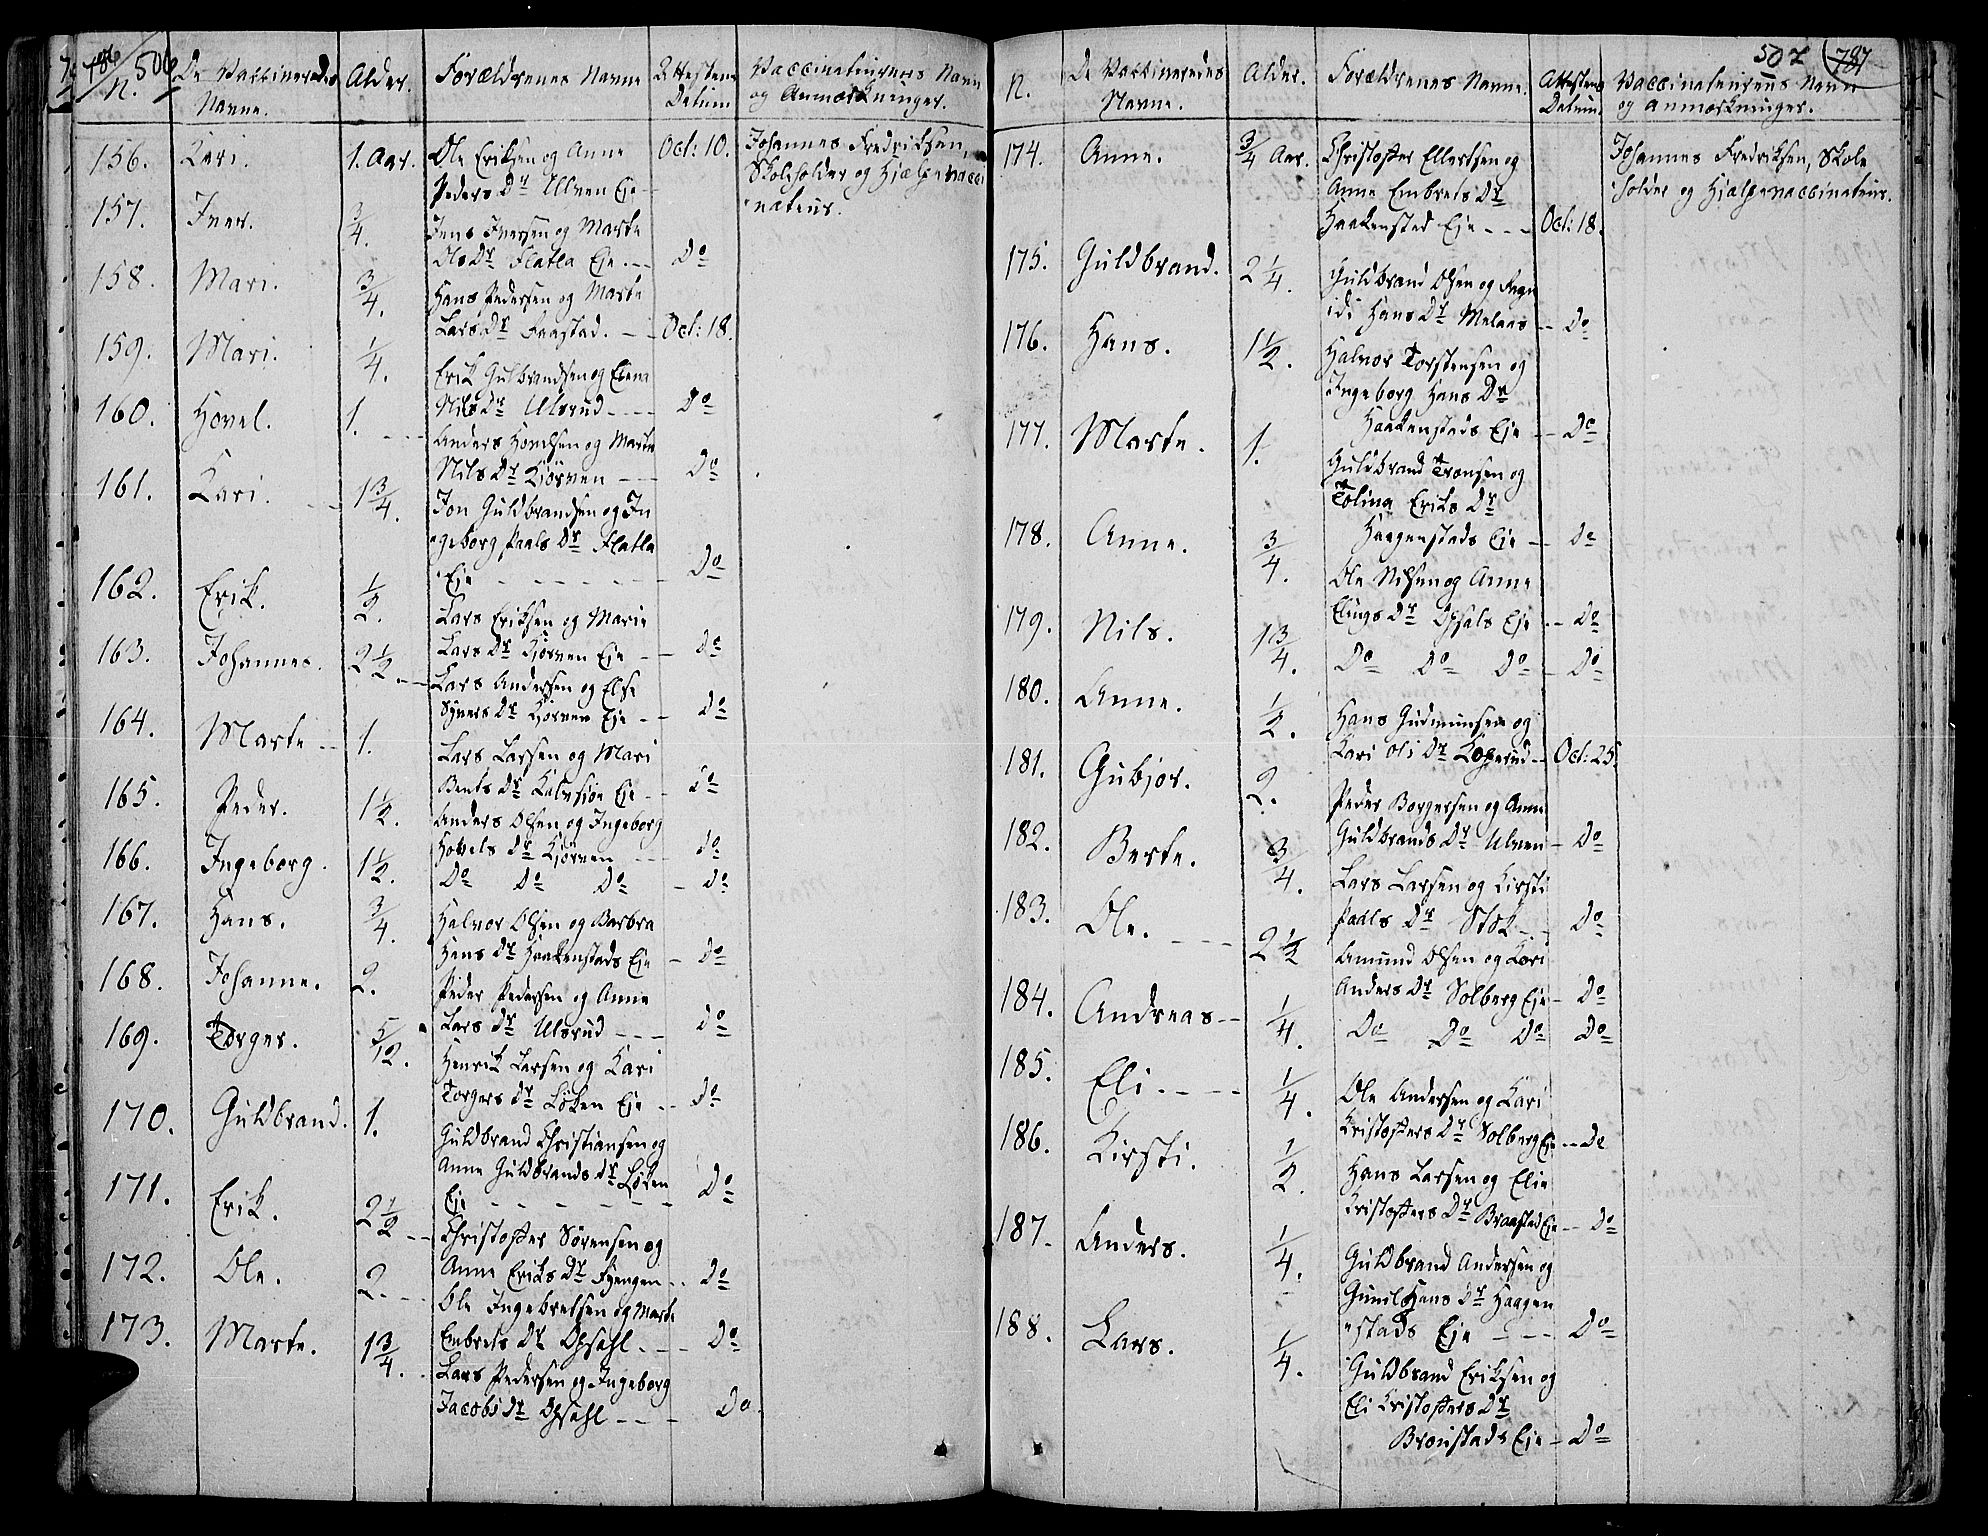 786 506
N. De Vaccineredes Navne. Alder. Forældrenes Navne Attestens Datum Vaccinateurens Navn og Anmærkninger.
156. Kari. 1. Aar. Ole Eriksen og Anne Oct: 10. Johannes Fredriksen,
Peders Dr Ulven Eje Skoleholder og Hjælpevacci
157. Iver. 3/4. Jens Iversen og Marte nateur.
Ols Dr Flatla Eje. Do
158. Mari. 3/4. Hans Pedersen og Marte
Lars Dr Faastad. Oct: 18.
159. Mari. 1/4. Erik Gulbrandsen og
Nils Dr Ulsrud Do
160. Hovel. 1. Anders Hovelsen og Marte
Nils Dr Kjörven Do
161. Kari. 1 3/4. Jon Guldbrandsen og In
geborg Paals Dr Flatla
Eje Do
162. Erik. 1/2. Lars Eriksen og Marie
Lars Dr Kjörven Eje Do
163. Johannes. 2 1/2. Lars Andersen og Else
Syvers Dr Kjörven Eje Do
164. Marte 1. Lars Larsen og Mari
Bents Dr Kalvsjöe Eje Do
165. Peder. 1 1/2. Anders Olsen og Ingeborg
Hovels Dr Kjörven Do
166. Ingeborg. 1 1/2. Do Do Do Do
167. Hans. 3/4. Halvor Olsen og Barbra
Hans Dr Haakenstads Eje Do
168. Johanne. 2. Peder Pedersen og Anne
Lars Dr Ulsrud Do
169. Torger. 5/12. Henrik Larsen og Kari
Torgers Dr Löken Eje Do
170. Guldbrand. 1. Guldbrand Christiansen og
Anne Guldbrands Dr Löken
Eje Do
171. Erik. 2 1/2 Christoffer Sörensen og
Anne Eriks Dr Do
172. Ole. 2. Ole Ingebretsen og Marte
Embrets Dr Opsahl. Do
173. Marte. 1 3/4. Lars Pedersen og Ingeborg
Jacobs Dr Opsahl Do.
507 787
N. De Vaccineredes Navne. Alder. Forældrenes Navne. Attestens Datum. Vaccinateurens Navn og Anmærkninger.
174. Anne. 3/4 Aar. Christoffer Ellertsen og Johannes Fredriksen, Skole
Anne Embrets Dr holder og Hjælpevaccinateur.
Haakenstad Eje Oct: 18.
175. Guldbrand. 2 1/4. Guldbrand Olsen og Ragn
idi Hans Dr Melaas Do
176. Hans. 1 1/2. Halvor Torstensen og
Ingeborg Hans Dr
Haakenstads Eje Do
177. Marte. 1. Guldbrand Tronsen og
Tolina Eriks Dr
Haagenstads Eje Do
178. Anne. 3/4. Ole Nilsen og Anne
Elings Dr Opsals Eje Do
179. Nils. 1 3/4. Do Do Do Do
180. Anne. 1/2. Hans Gudmunsen og
Kari Ols Dr Koperud Oct: 25.
181. Gubjor. 2. Peder Borgersen og Anne
Guldbrands Dr Ulven Do
182. Berte. 3/4. Lars Larsen og Kirsti
Paals Dr Stok Do
183. Ole. 2 1/2 Amund Olsen og Kari
Anders Dr Solberg Eje Do
184. Andreas 1/4. Do Do Do Do
185. Eli. 1/4. Ole Andersen og Kari
Kristoffers Dr Solberg Eje Do
186. Kirsti. 1/2. Hans Larsen og Elie
Kristoffers Dr Braastad Eje Do
187. Anders. 1/4. Guldbrand Andersen og
Gunild Hans Dr Haagen
stads Eje Do
188. Lars. 1/4. Guldbrand Eriksen og
Eli Kristoffers Dr
Bronstads Eje Do